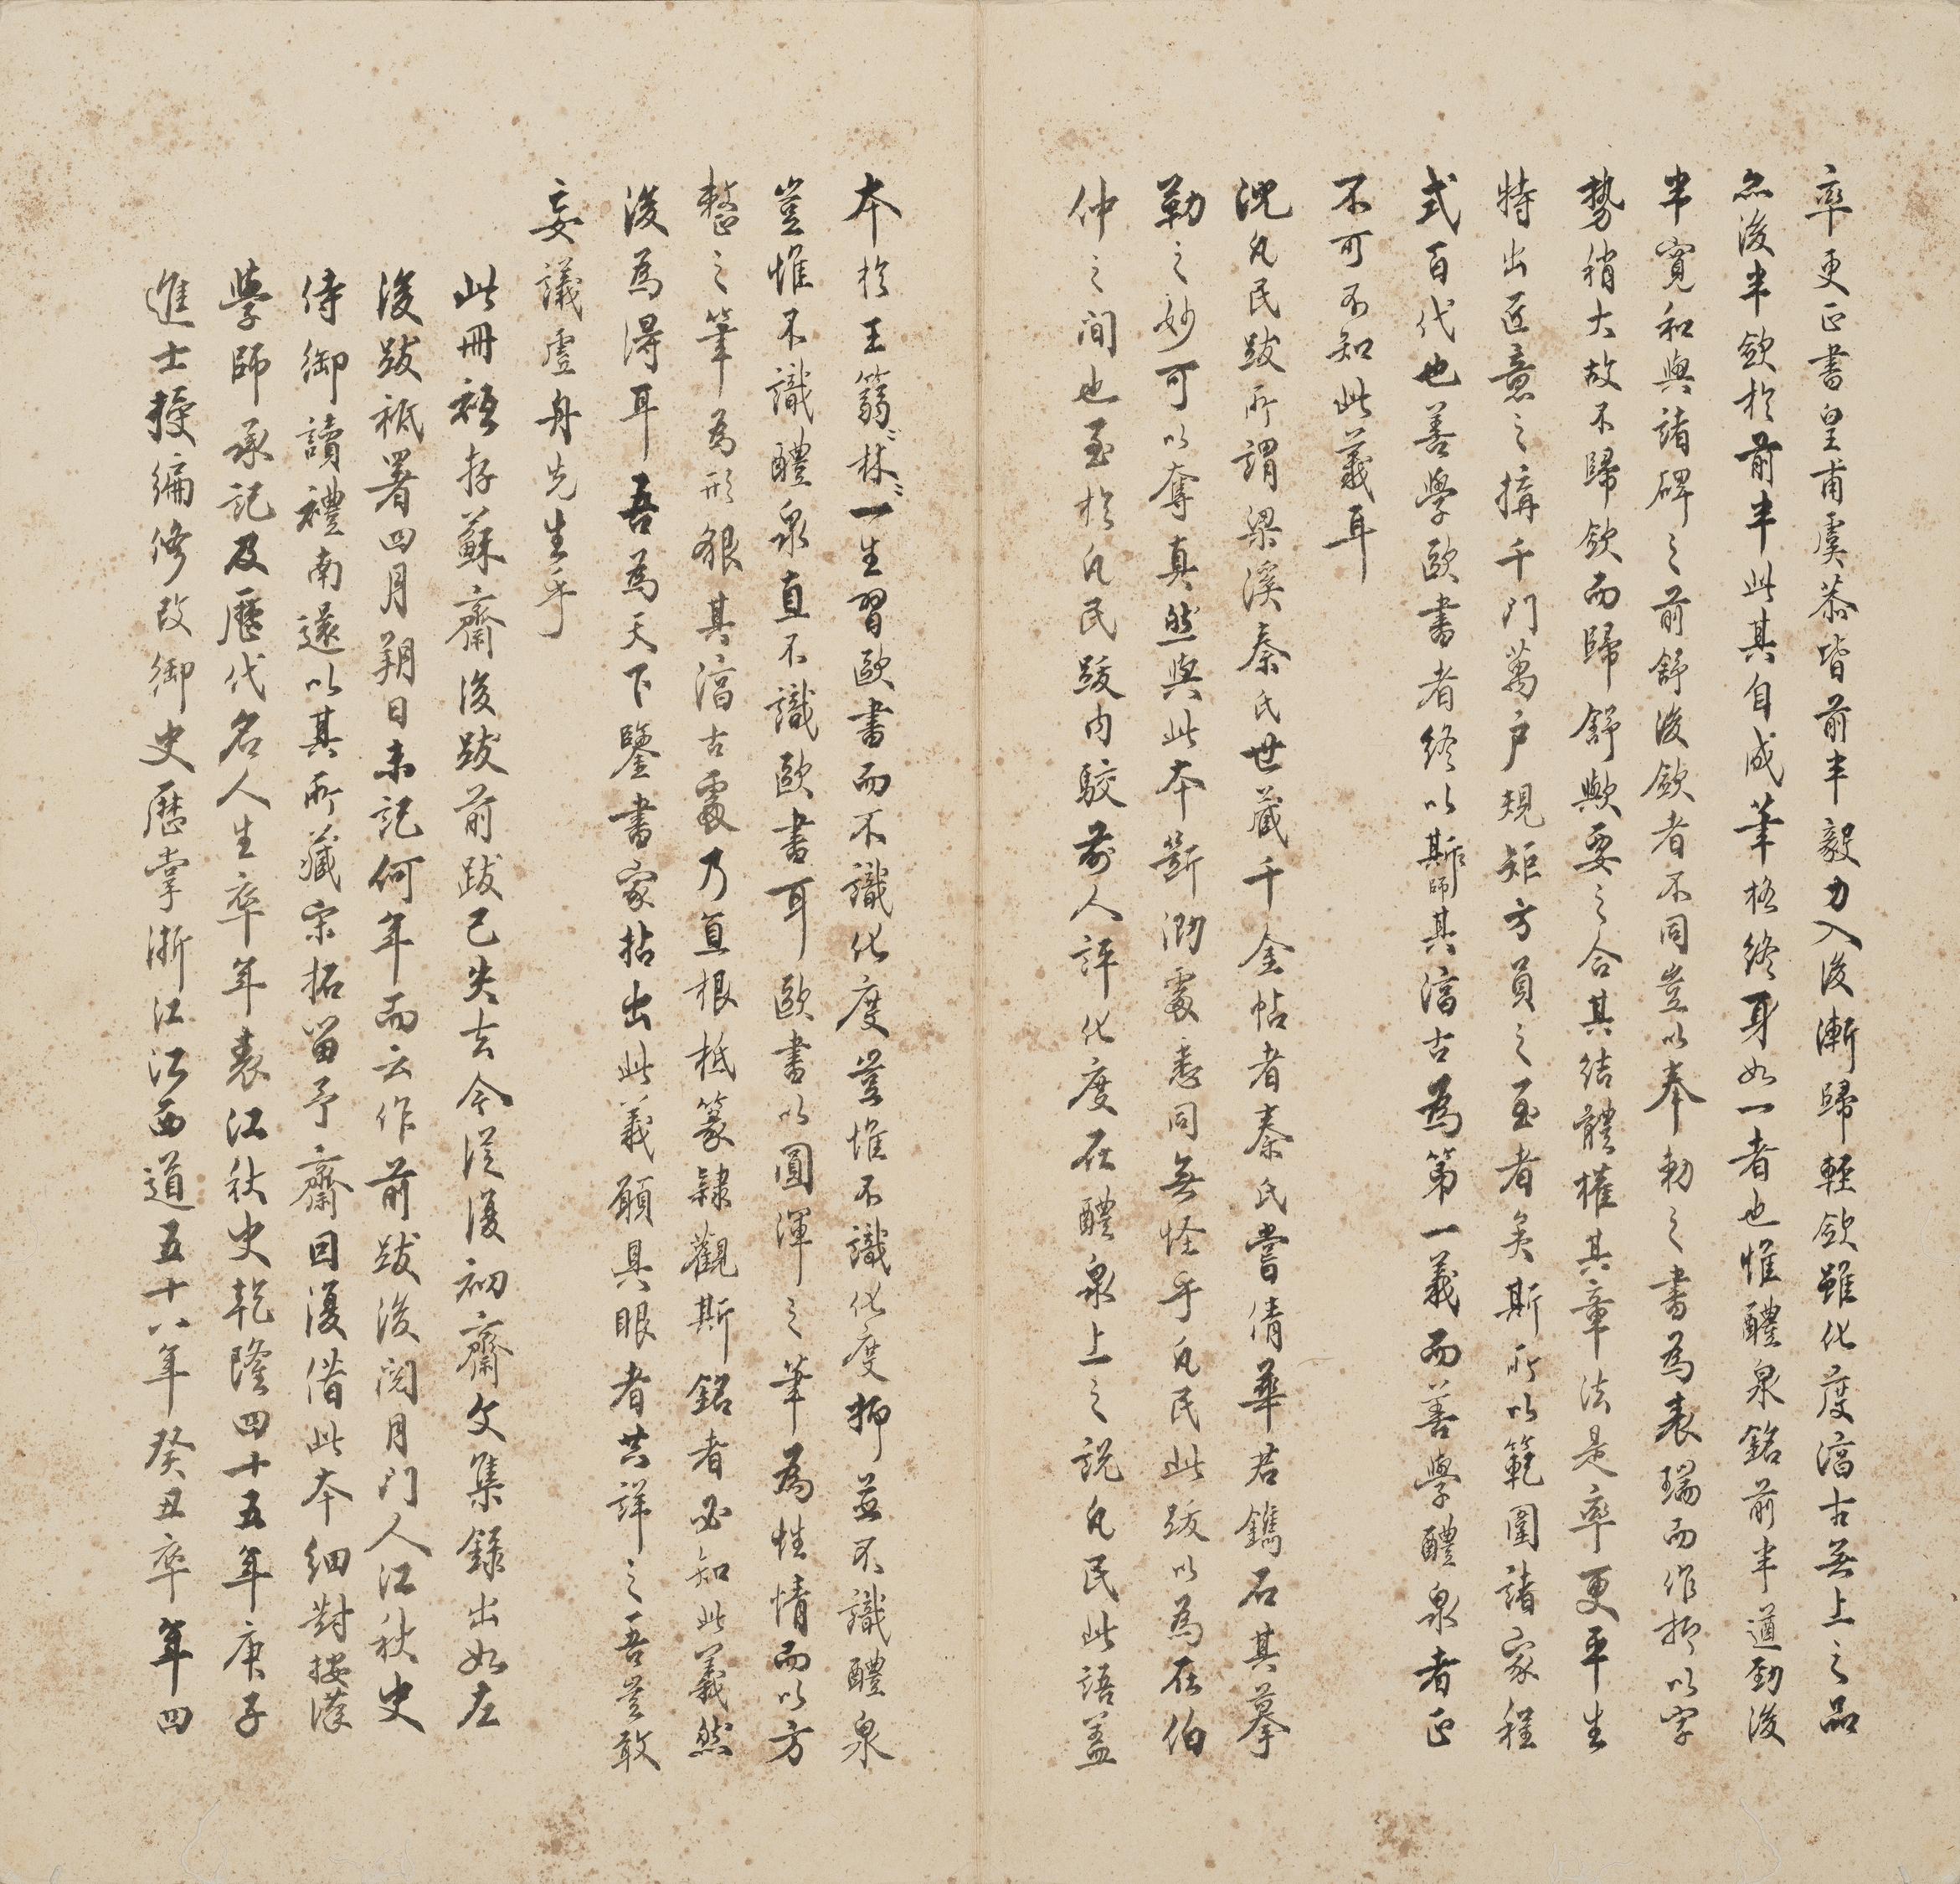 率更正書皇甫虞恭皆前半毅力入後漸歸輕斂雖化度淳古無上之品
然後半斂於前半此其自成筆格終身如一者也惟醴泉銘前半遒勁後
半寬和與諸碑之前舒後斂者不同豈以奉勅之書為表瑞而作抑以字
勢稍大故不歸斂而歸舒歟要之合其結體權其章法是率更平生
特出匠意之搆千門萬户規矩方員之至者矣斯所以範圍諸家程
式百代也善學歐書者終以斯師其淳古為第一義而善學醴泉者正
不可不知此義耳
況凡民跋所謂梁溪秦氏世藏千金帖者秦氏嘗倩華君鐫石其摹
勒之妙可以奪真然與此本斷泐處悉同無怪乎凡民此跋以為在伯
仲之間也至於凡民跋内駮前人評化度在醴泉上之説凡民此語蓋
本於王篛林〻〻一生習歐書而不識化度豈惟不識化度抑並不識醴泉
豈惟不識醴泉直不識歐書耳歐書以圓渾之筆為性情而以方
整之筆為形貌其淳古處乃直根柢篆隸觀斯銘者必知此義然
後為得耳吾為天下鑒書家拈出此義願具眼者共詳之吾豈敢
妄議虛舟先生乎
此冊稿存蘇齋後跋前跋已失去今從復初齋文集錄出如左
後跋祗署四月朔日未記何年而云作前跋後閱月門人江秋史
侍御讀禮南還以其所藏宋拓留予齋回復借此本細對按漢
學師承記及歷代名人生卒年表江秋史乾隆四十五年庚子
進士授編修改御史歷掌浙江江西道五十八年癸丑卒年四